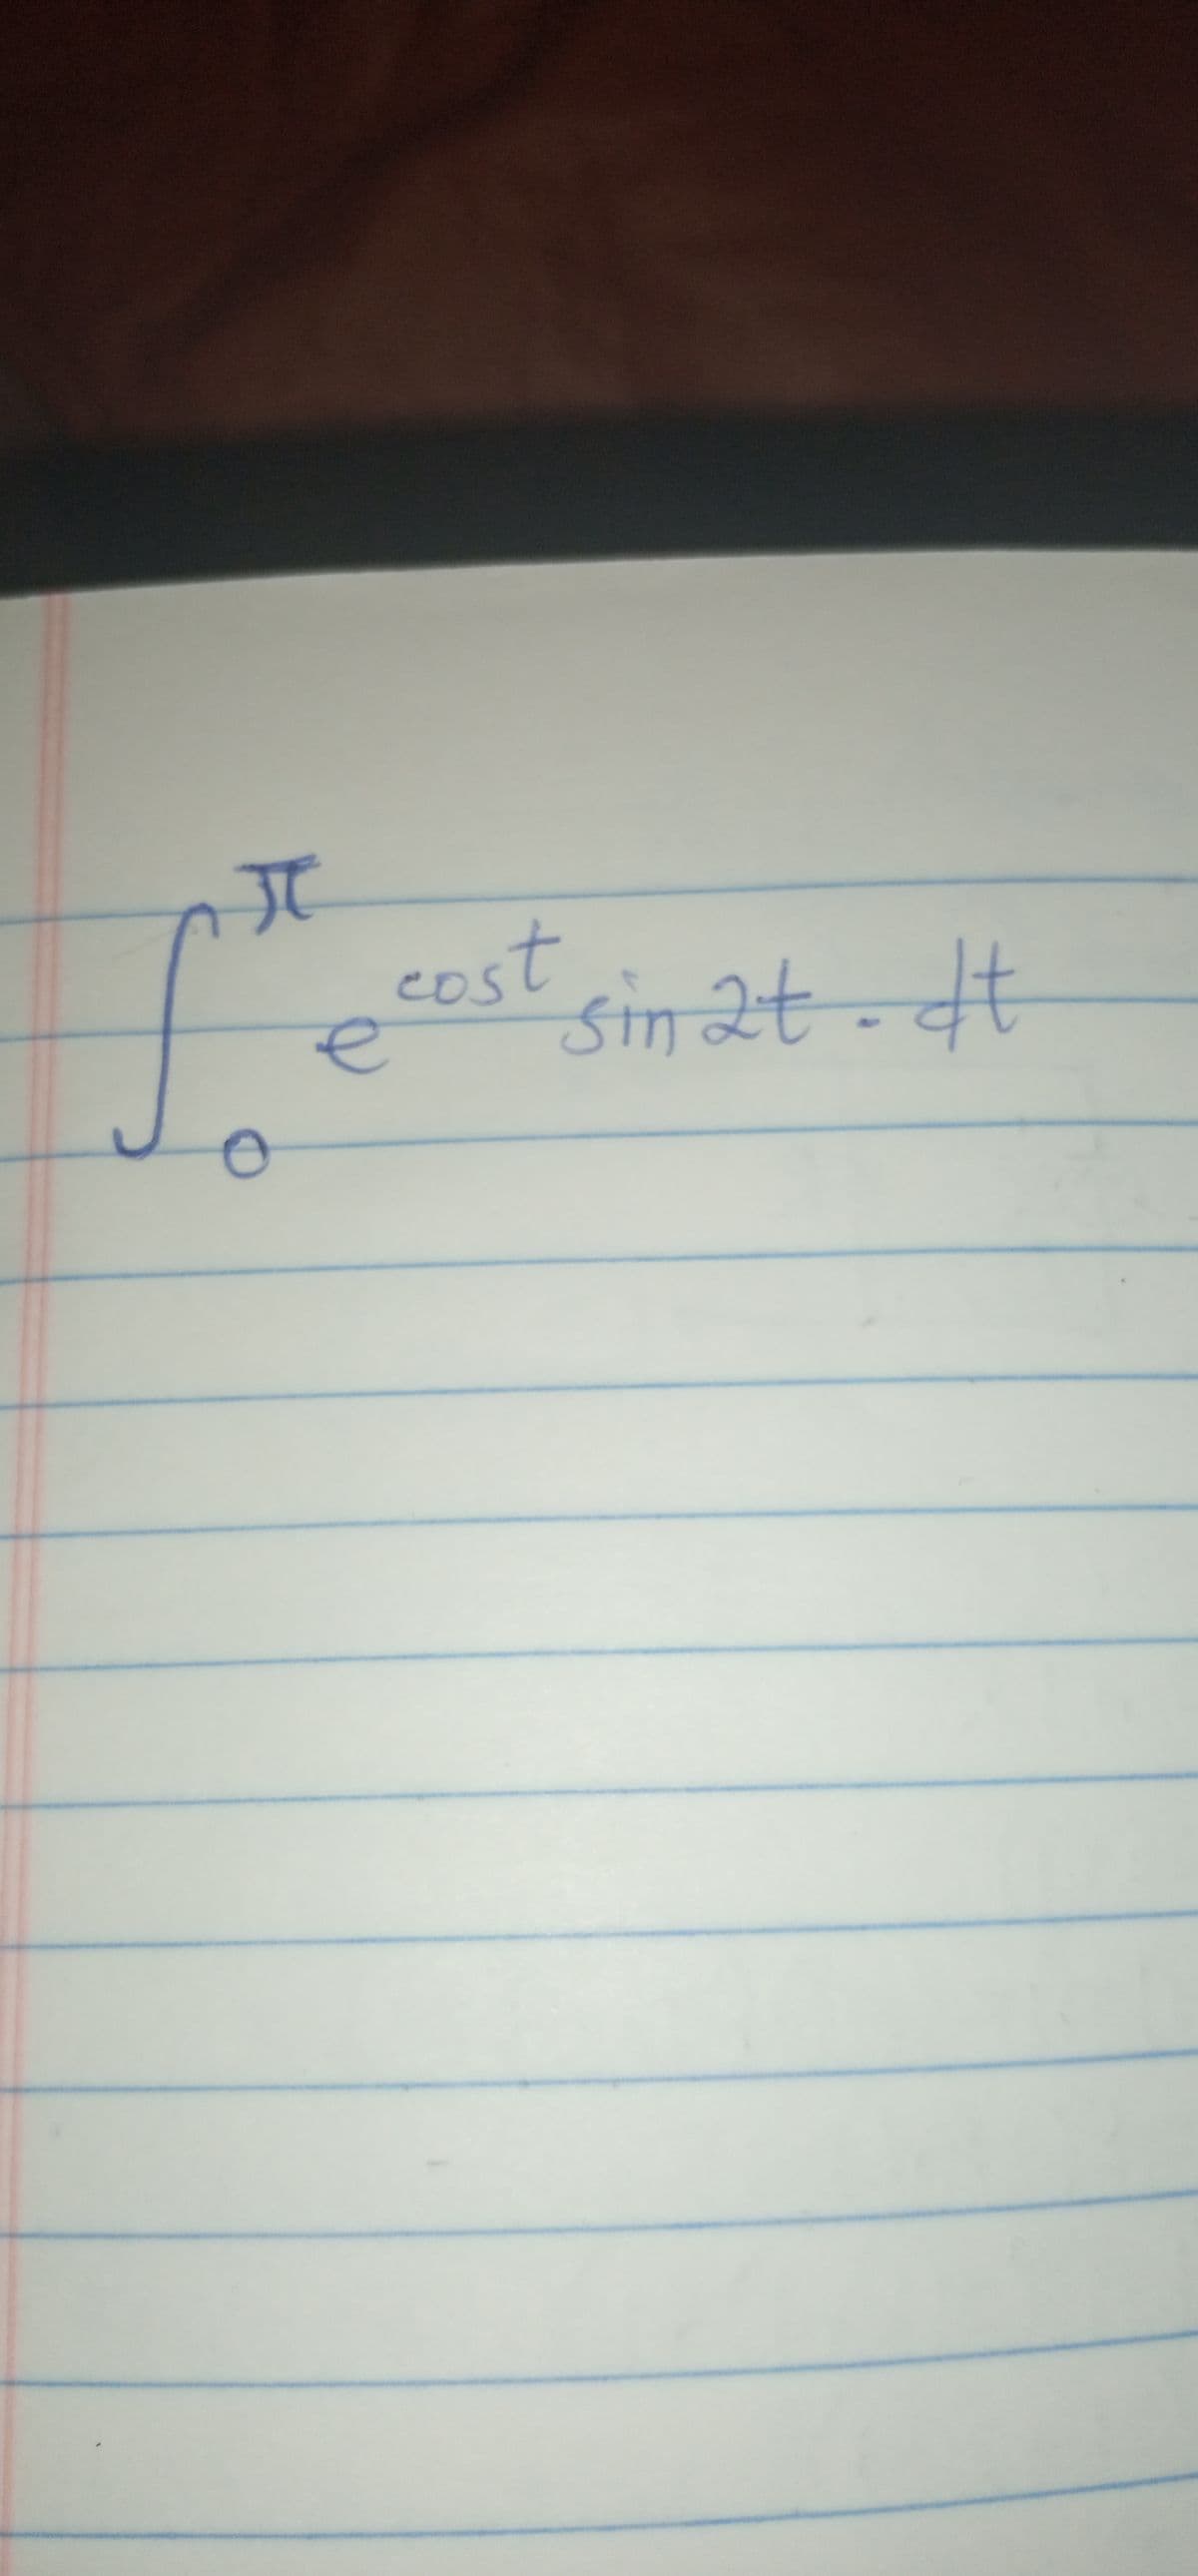 ∫₀^π e^cost sin2t . dt